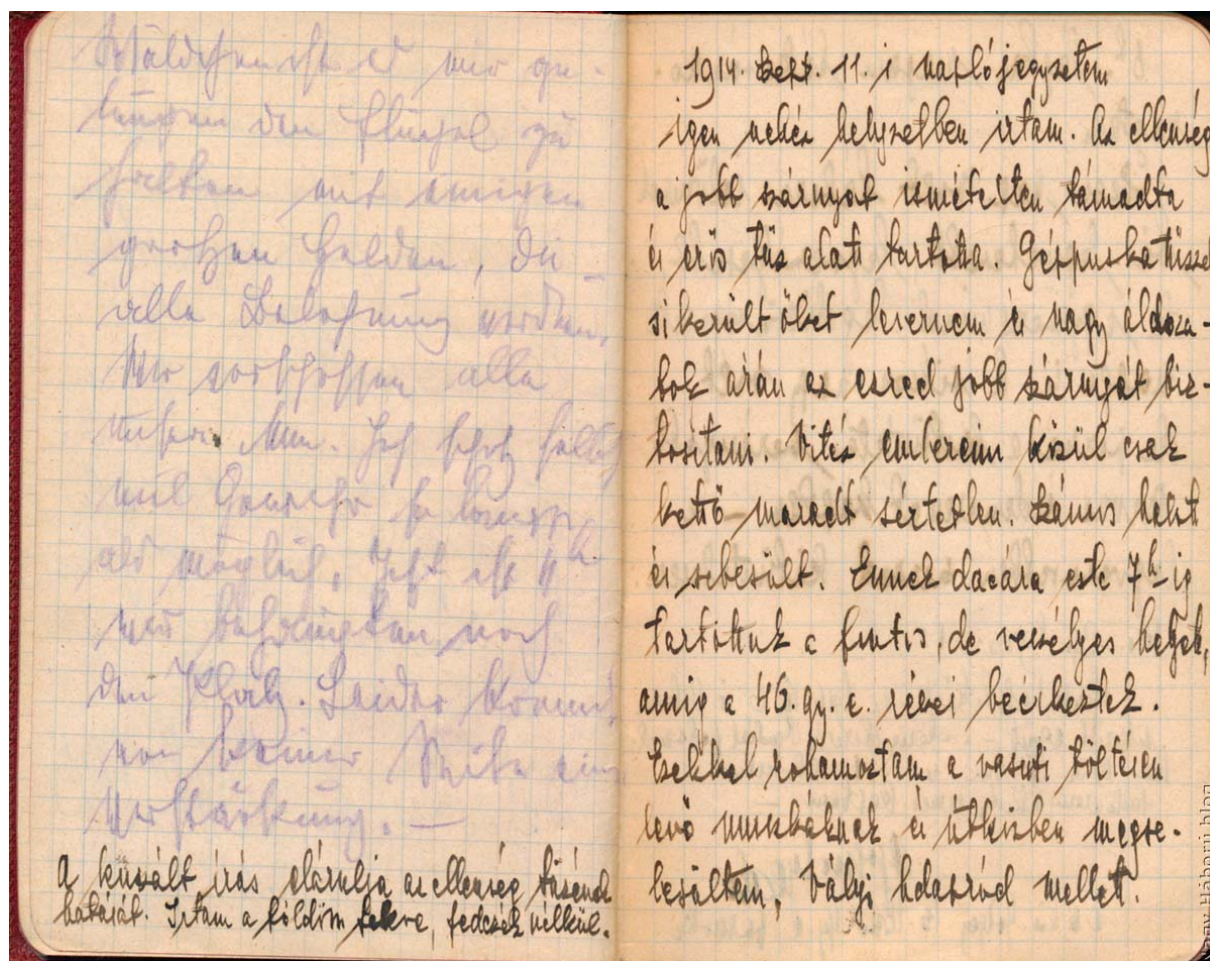 Wäldchen ist es mir ge-
lungen den Flügel zu
halten mit einigen
großen Helden, die
alle Belohnung
Wir verschossen alle
unsere Mun. Ich selbst
mit Gewehr so
als möglich. Jetzt ist
wir behaupten noch
den Platz. Leider kommt
von keiner Seite eine
Verstärkung. —
A kúszált írás elárulja az ellenség tüzének
hatását. Irtam a földön fekve, fedezék nélkül.
1914. Sept. 11. i naplójegyzetem
igen nehéz helyzetben irtam. Az ellenség
a jobb szárnyat ismételten támadta
és erős tüz alatt tartotta. Géppuska tüzzel
sikerült őket levernem és nagy áldoza-
tok árán az ezred jobb szárnyát biz-
tosítani. Vitéz embereim közül csak
kettő maradt sértetlen. Számos halott
és sebesült. Ennek dacára este 7h-ig
tartottuk a fontos, de veszélyes helyet,
amig a 46. gy. e. részei beérkeztek.
Ezekkel rohamoztam a vasuti töltésen
levő muszkáknak és útközben megse-
besültem, mellett.
Nagy Háború blog